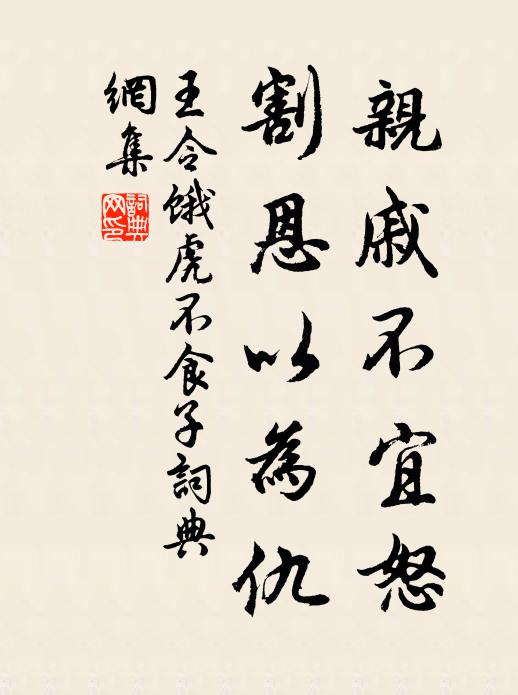 親戚不宜怒
割恩以為仇
王令餓虎不食子詞典
網集
詞典
网印